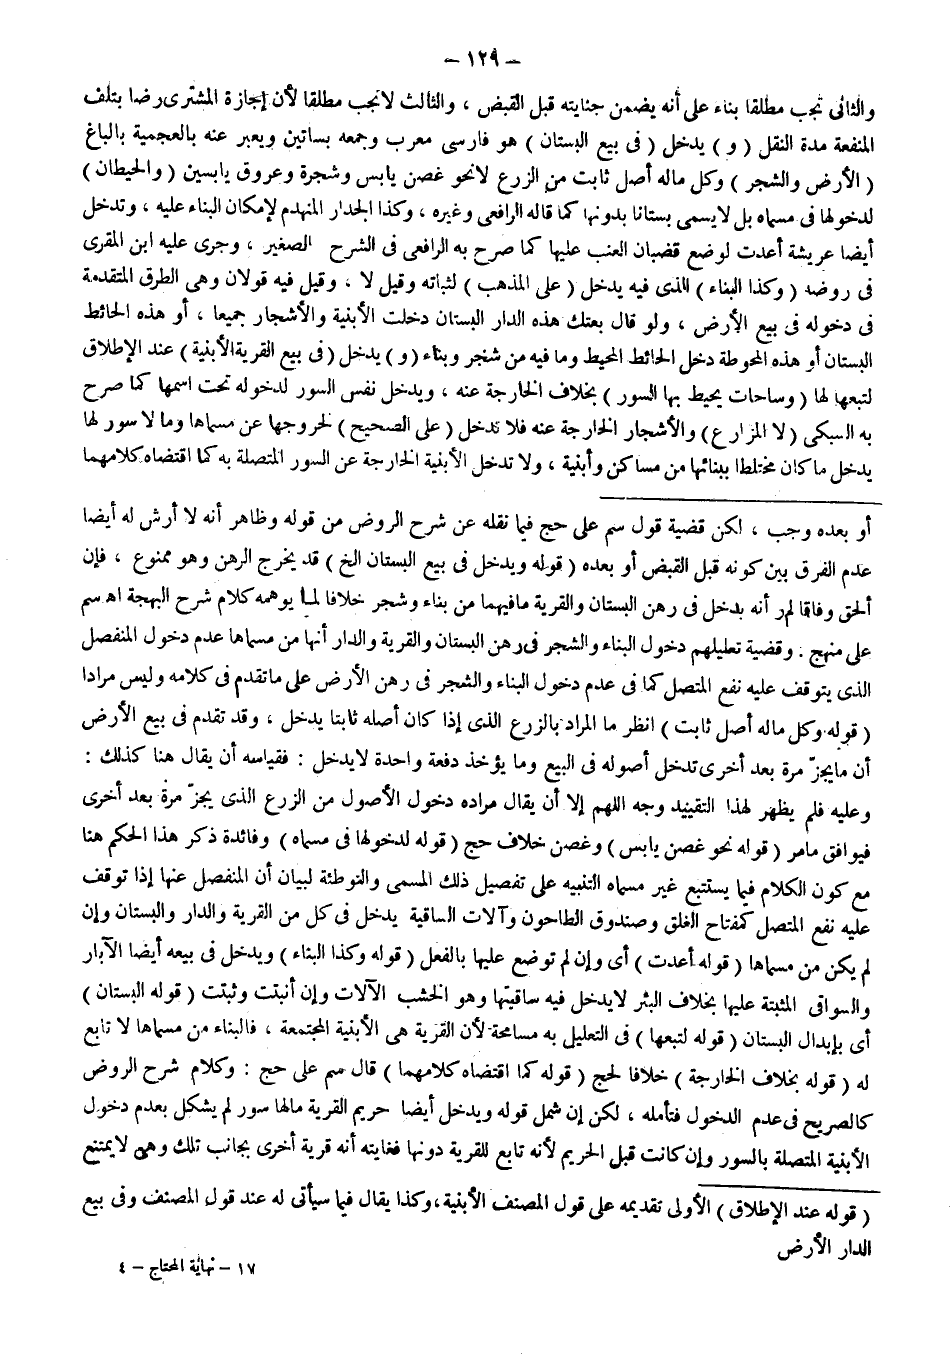 – ١٢٩ –
والثانى تجب مطلقا بناء على أنه يضمن جنايته قبل القبض ، والثالث لاتجب مطلقا لأن إجازة المشترى رضا بتلف
المنفعة مدة النقل ( و ) يدخل ( فى بيع البستان ) هو فارسى معرب وجمعه بساتين ويعبر عنه بالعجمية بالباغ
( الأرض والشجر ) وكل ماله أصل ثابت من الزرع لانحو غصن يابس وشجرة وعروق يابسين ( والحيطان )
لدخولها فى مسماه بل لايسمى بستانا بدونها كما قاله الرافعى وغيره ، وكذا الجدار المنهدم لإمكان البناء عليه ، وتدخل
أيضا عريشة أعدت لوضع قضبان العنب عليها كما صرح به الرافعى فى الشرح الصغير ، وجرى عليه ابن المقرى
فى روضه ( وكذا البناء ) الذى فيه يدخل ( على المذهب ) لثباته وقيل لا ، وقيل فيه قولان وهى الطرق المتقدمة
فى دخوله فى بيع الأرض ، ولو قال بعتك هذه الدار البستان دخلت الأبنية والأشجار جميعا ، أو هذه الحائط
البستان أو هذه المحوطة دخل الحائط المحيط وما فيه من شجر وبناء ( و ) يدخل ( فى بيع القرية الأبنية ) عند الإطلاق
لتبعها لها ( وساحات يحيط بها السور ) بخلاف الخارجة عنه ، ويدخل نفس السور لدخوله تحت اسمها كما صرح
به السبكى ( لا المزارع ) والأشجار الخارجة عنه فلا تدخل ( على الصحيح ) لخروجها عن مسماها وما لا سور لها
يدخل ما كان مختلطا ببنائها من مساكن وأبنية ، ولا تدخل الأبنية الخارجة عن السور المتصلة به كما اقتضاه كلامهما
أو بعده وجب ، لكن قضية قول سم على حج فيما نقله عن شرح الروض من قوله وظاهر أنه لا أرش له أيضا
عدم الفرق بين كونه قبل القبض أو بعده ( قوله ويدخل فى بيع البستان الخ ) قد يخرج الرهن وهو ممنوع ، فإن
ألحق وفاقا لمر أنه يدخل فى رهن البستان والقرية مافيهما من بناء وشجر خلافا لما يوهمه كلام شرح البهجة اه سم
على منهج . وقضية تعليلهم دخول البناء والشجر فى رهن البستان والقرية والدار أنها من مسماها عدم دخول المنفصل
الذى يتوقف عليه نفع المتصل كما فى عدم دخول البناء والشجر فى رهن الأرض على ماتقدم فى كلامه وليس مرادا
( قوله وكل ماله أصل ثابت ) انظر ما المراد بالزرع الذى إذا كان أصله ثابتا يدخل ، وقد تقدم فى بيع الأرض
أن مايجزّ مرة بعد أخرى تدخل أصوله فى البيع وما يؤخذ دفعة واحدة لايدخل : فقياسه أن يقال هنا كذلك :
وعليه فلم يظهر لهذا التقييد وجه اللهم إلا أن يقال مراده دخول الأصول من الزرع الذى يجزّ مرة بعد أخرى
فيوافق مامر ( قوله نحو غصن يابس ) وغصن خلاف حج ( قوله لدخولها فى مسماه ) وفائدة ذكر هذا الحكم هنا
مع كون الكلام فيما يستتبع غير مسماه التنبيه على تفصيل ذلك المسمى والتوطئة لبيان أن المنفصل عنها إذا توقف
عليه نفع المتصل كمفتاح الغلق وصندوق الطاحون وآلات الساقية يدخل فى كل من القرية والدار والبستان وإن
لم يكن من مسماها ( قوله أعدت ) أى وإن لم توضع عليها بالفعل ( قوله وكذا البناء ) ويدخل فى بيعه أيضا الآبار
والسواقى المثبتة عليها بخلاف البئر لايدخل فيه ساقيتها وهو الخشب الآلات وإن أثبتت وثبتت ( قوله البستان )
أى بإبدال البستان ( قوله لتبعها ) فى التعليل به مسامحة لأن القرية هى الأبنية المجتمعة ، فالبناء من مسماها لا تابع
له ( قوله بخلاف الخارجة ) خلافا لحج ( قوله كما اقتضاه كلامهما ) قال سم على حج : وكلام شرح الروض
كالصريح فى عدم الدخول فتأمله ، لكن إن شمل قوله ويدخل أيضا حريم القرية مالها سور لم يشكل بعدم دخول
الأبنية المتصلة بالسور وإن كانت قبل الحريم لأنه تابع للقرية دونها فغايته أنه قرية أخرى بجانب تلك وهى لايمتنع
( قوله عند الإطلاق ) الأولى تقديمه على قول المصنف الأبنية ، وكذا يقال فيما سيأتى له عند قول المصنف وفى بيع
الدار الأرض
١٧ – نهاية المحتاج – ٤